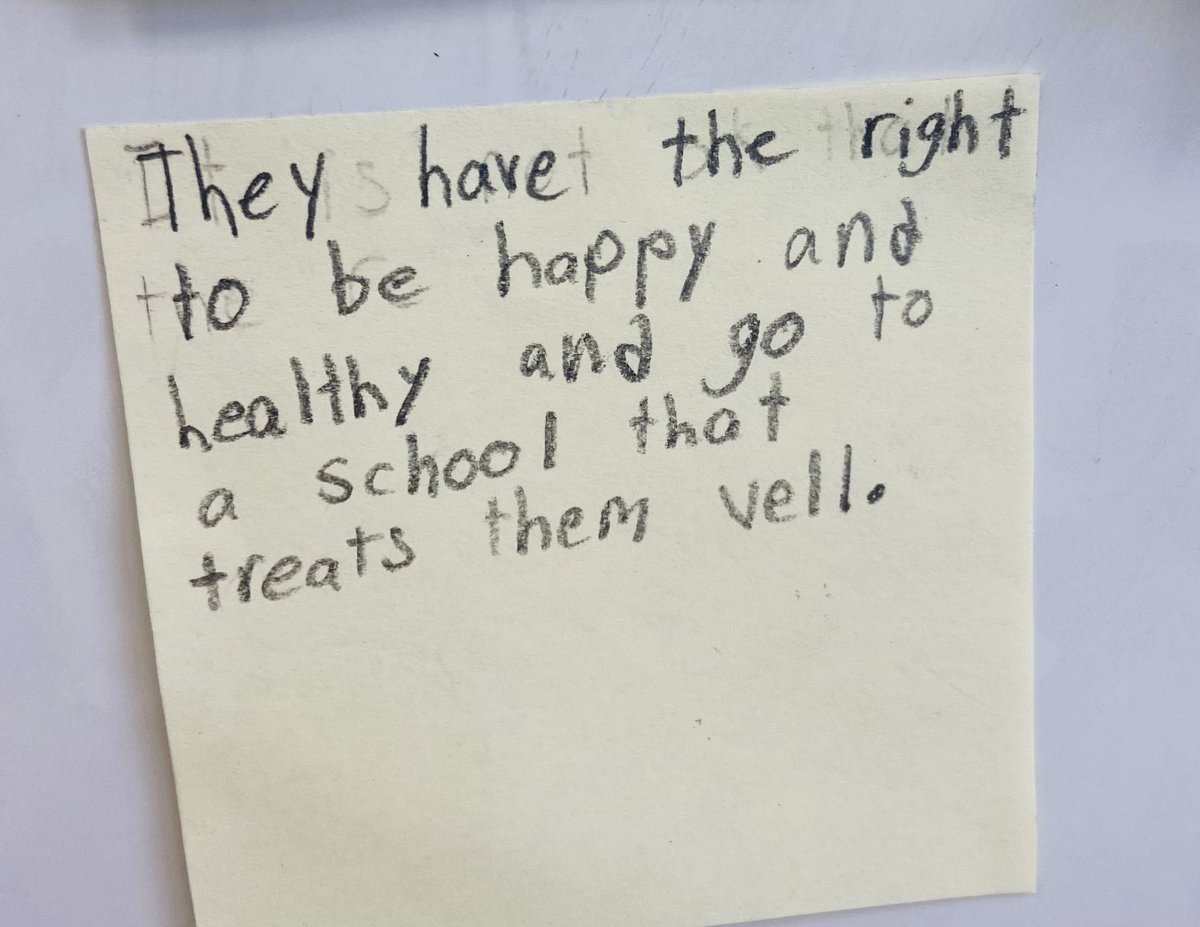 They have the right
to be happy and
healthy and go to
a school that
treats them vell.